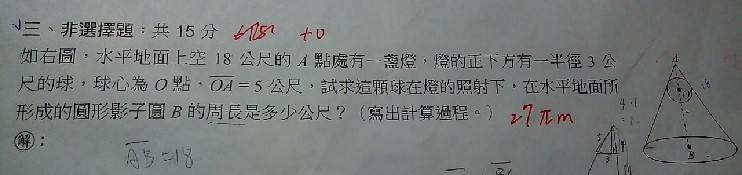 三、非選擇題：共 15 分 +0
如右圖，水平地面上空 18 公尺的 A 點處有一盞燈，燈的正下方有一半徑 3 公
尺的球，球心為 O 點，OA = 5 公尺，試求這顆球在燈的照射下，在水平地面所
形成的圓形影子圓 B 的周長是多少公尺？（寫出計算過程。） 27πm
解：
AB = 18
A
O
B